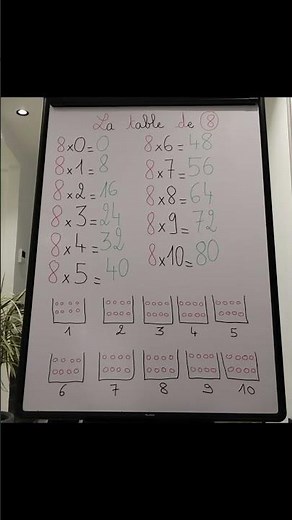 La table de 8
8x0=0
8x1=8
8x2=16
8x3=24
8x4=32
8x5=40
8x6=48
8x7=56
8x8=64
8x9=72
8x10=80
1 2 3 4 5
6 7 8 9 10